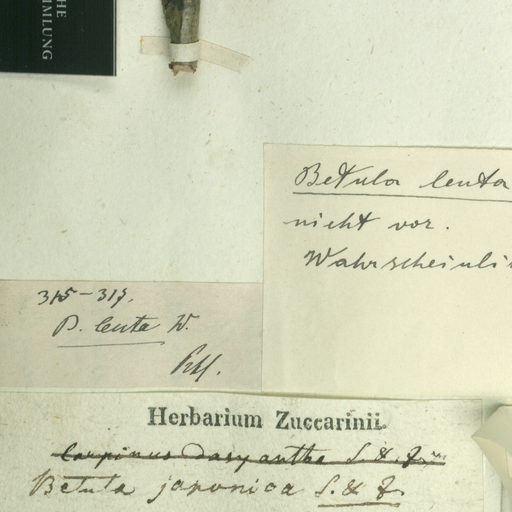 HE
MMLUNG
Betula lenta
nicht vor.
Wahrscheinli
315-317.
B. lenta W.
Herbarium Zuccarinii.
Carpinus dasyantha S. & Z.
Betula japonica S. & Z.